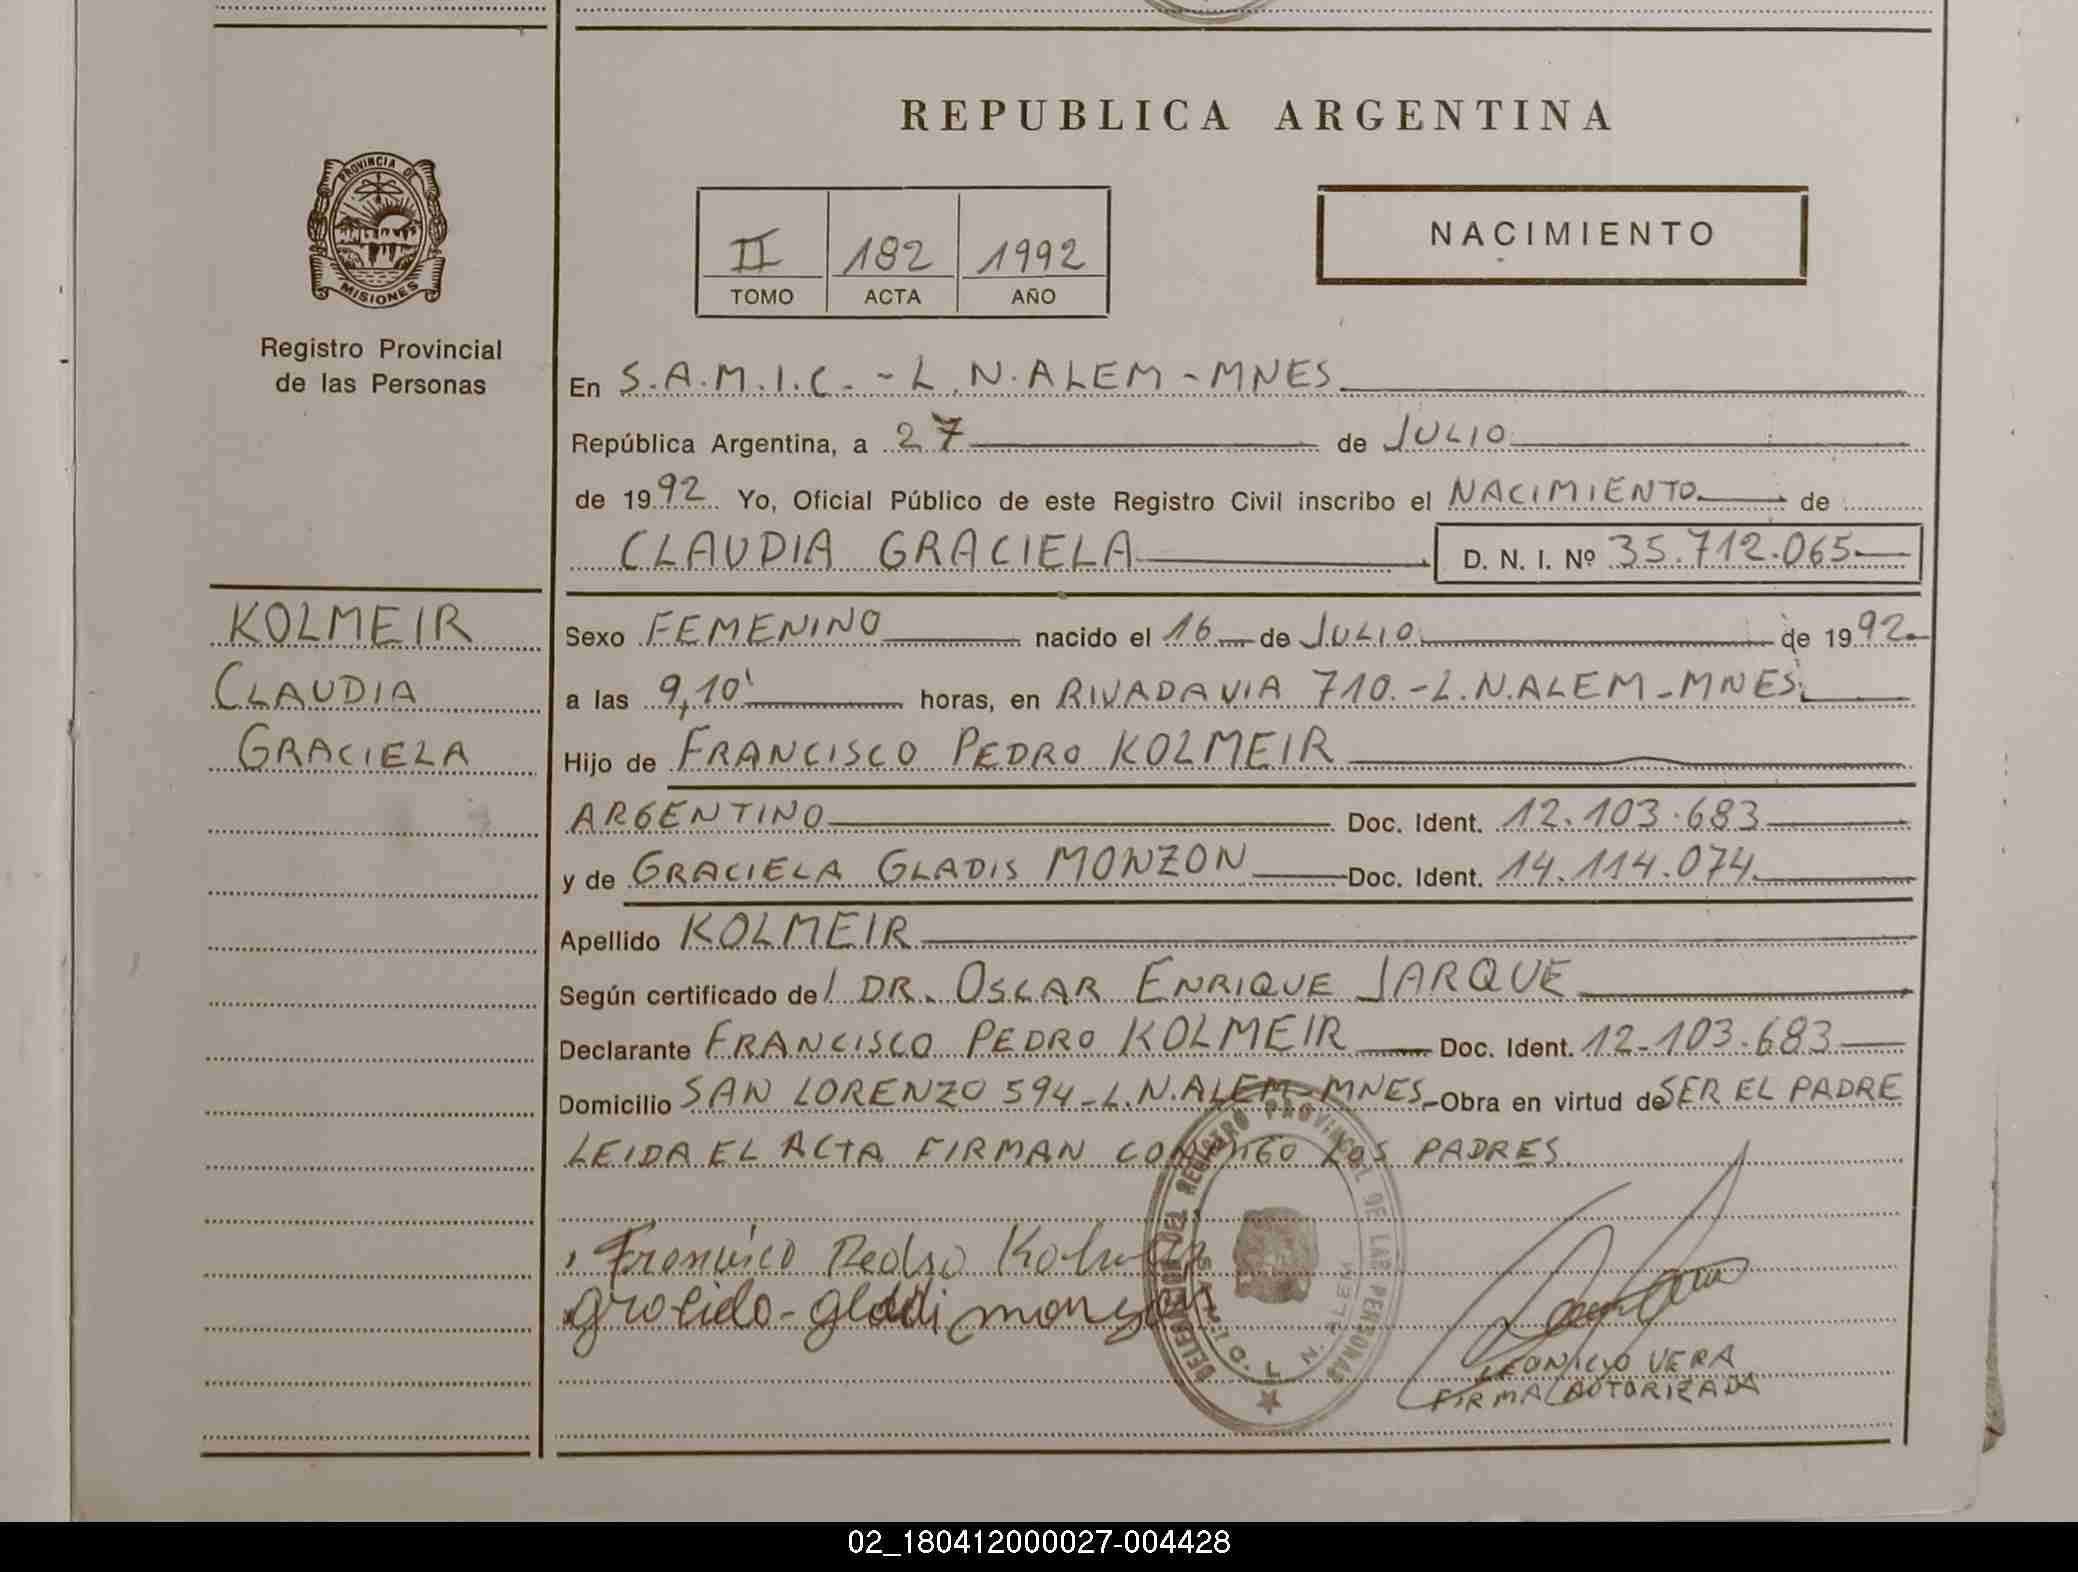 REPUBLICA ARGENTINA
PROVINCIA DE
MISIONES
Registro Provincial
de las Personas
II 182 1992
TOMO ACTA AÑO
NACIMIENTO
En S.A.M.I.C. - L.N.ALEM - MNES
República Argentina, a 27 de JULIO
de 1992 Yo, Oficial Público de este Registro Civil inscribo el NACIMIENTO de
CLAUDIA GRACIELA D. N. I. Nº 35.712.065
KOLMEIR
CLAUDIA
GRACIELA
Sexo FEMENINO nacido el 16 de JULIO de 1992
a las 9,10' horas, en RIVADAVIA 710.-L.N.ALEM-MNES.
Hijo de FRANCISCO PEDRO KOLMEIR
ARGENTINO Doc. Ident. 12.103.683
y de GRACIELA GLADIS MONZON Doc. Ident. 14.114.074
Apellido KOLMEIR
Según certificado del DR. OSCAR ENRIQUE JARQUE
Declarante FRANCISCO PEDRO KOLMEIR Doc. Ident. 12.103.683
Domicilio SAN LORENZO 594-L.N.ALEM-MNES-Obra en virtud de SER EL PADRE
LEIDA EL ACTA FIRMAN CONMIGO LOS PADRES.
REGISTRO PROVINCIAL DE LAS PERSONAS
L. N. ALEM
Francisco Pedro
LEONICIO VERA
FIRMA AUTORIZADA
02_180412000027-004428